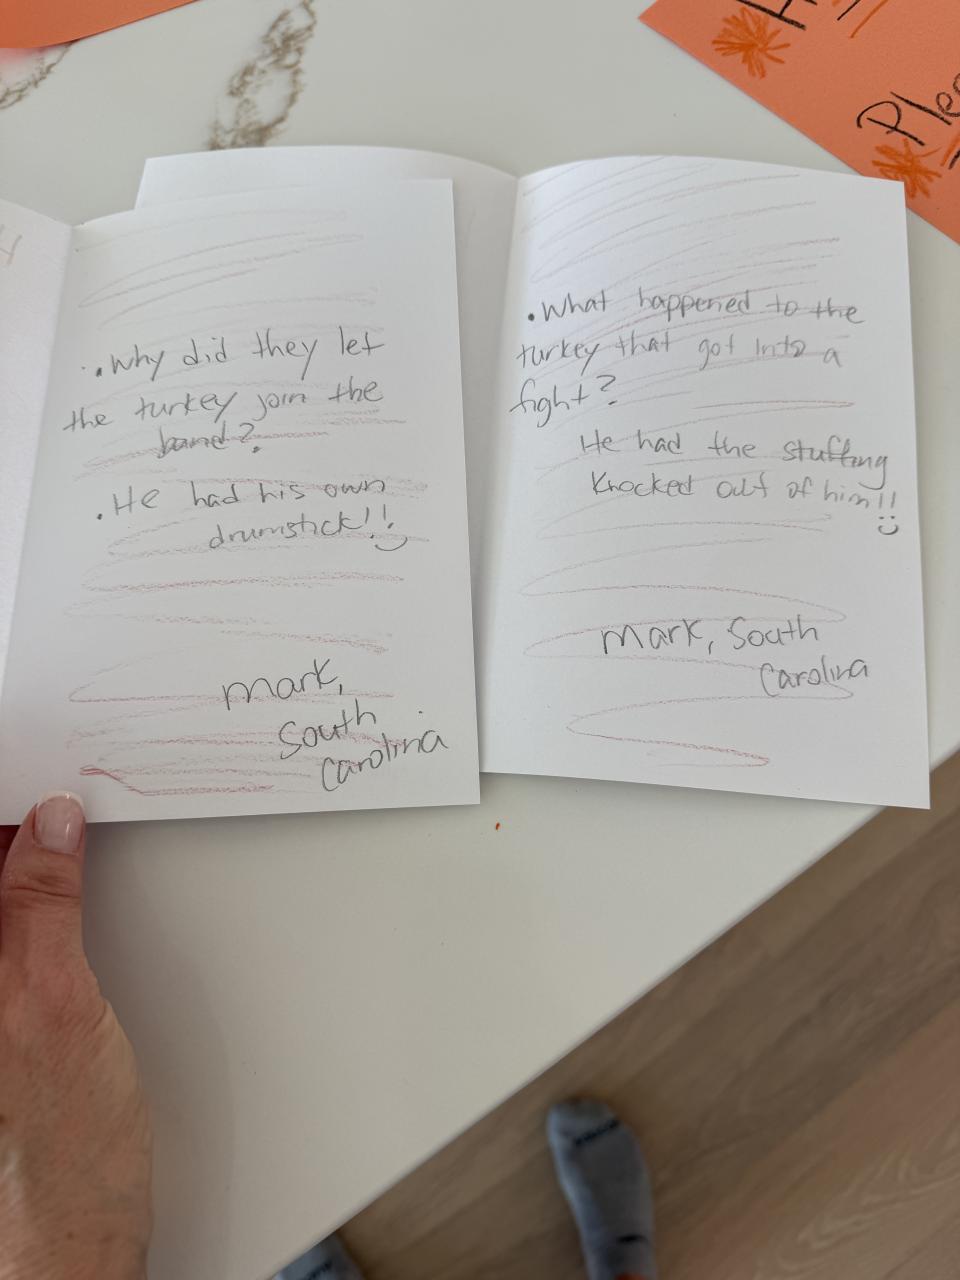 . Why did they let
the turkey join the
band?
. He had his own
drumstick!!
Mark,
South
Carolina
. What happened to the
turkey that got into a
fight?
He had the stuffing
Knocked out of him!!
Mark, South
Carolina